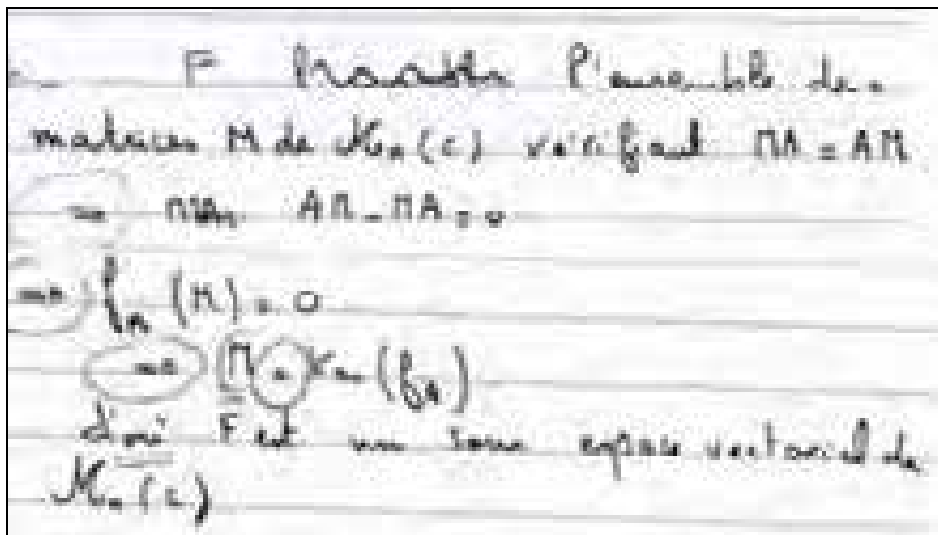 F l'ensemble des
matrices M de Mn(C) vérifiant MA = AM
=> AM - MA = 0
=> fA (M) = 0
=> M = Ker (fA)
d'où F est un sous espace vectoriel de
Mn(C)